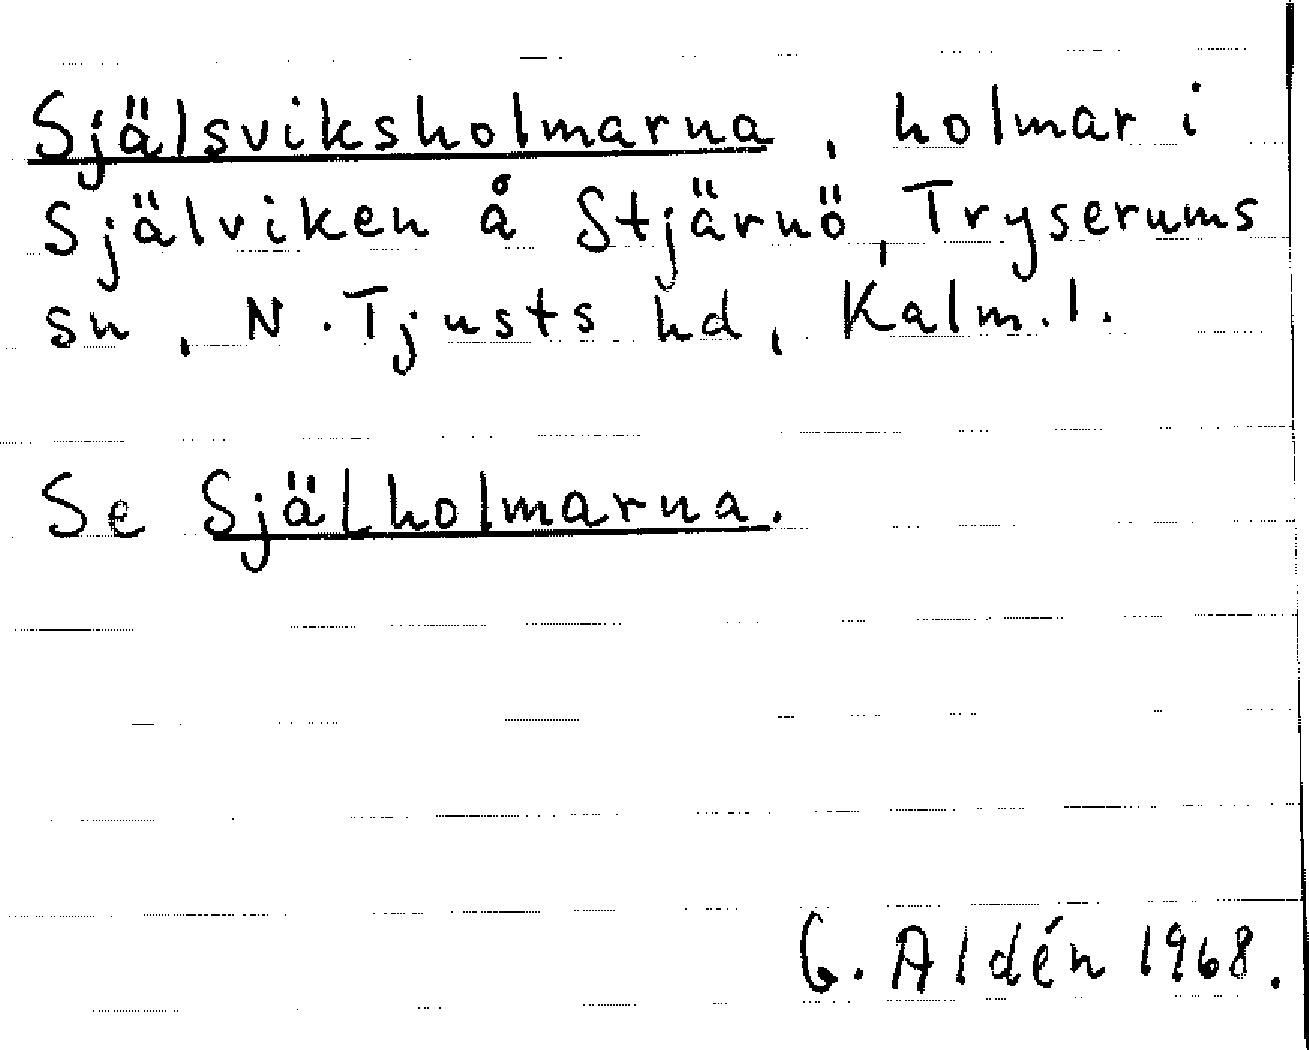 Själsviksholmarna, holmar i
Själviken å Stjärnö, Tryserums
sn, N. Tjusts hd, Kalm. l.
Se Själholmarna.
G. Aldén 1968.